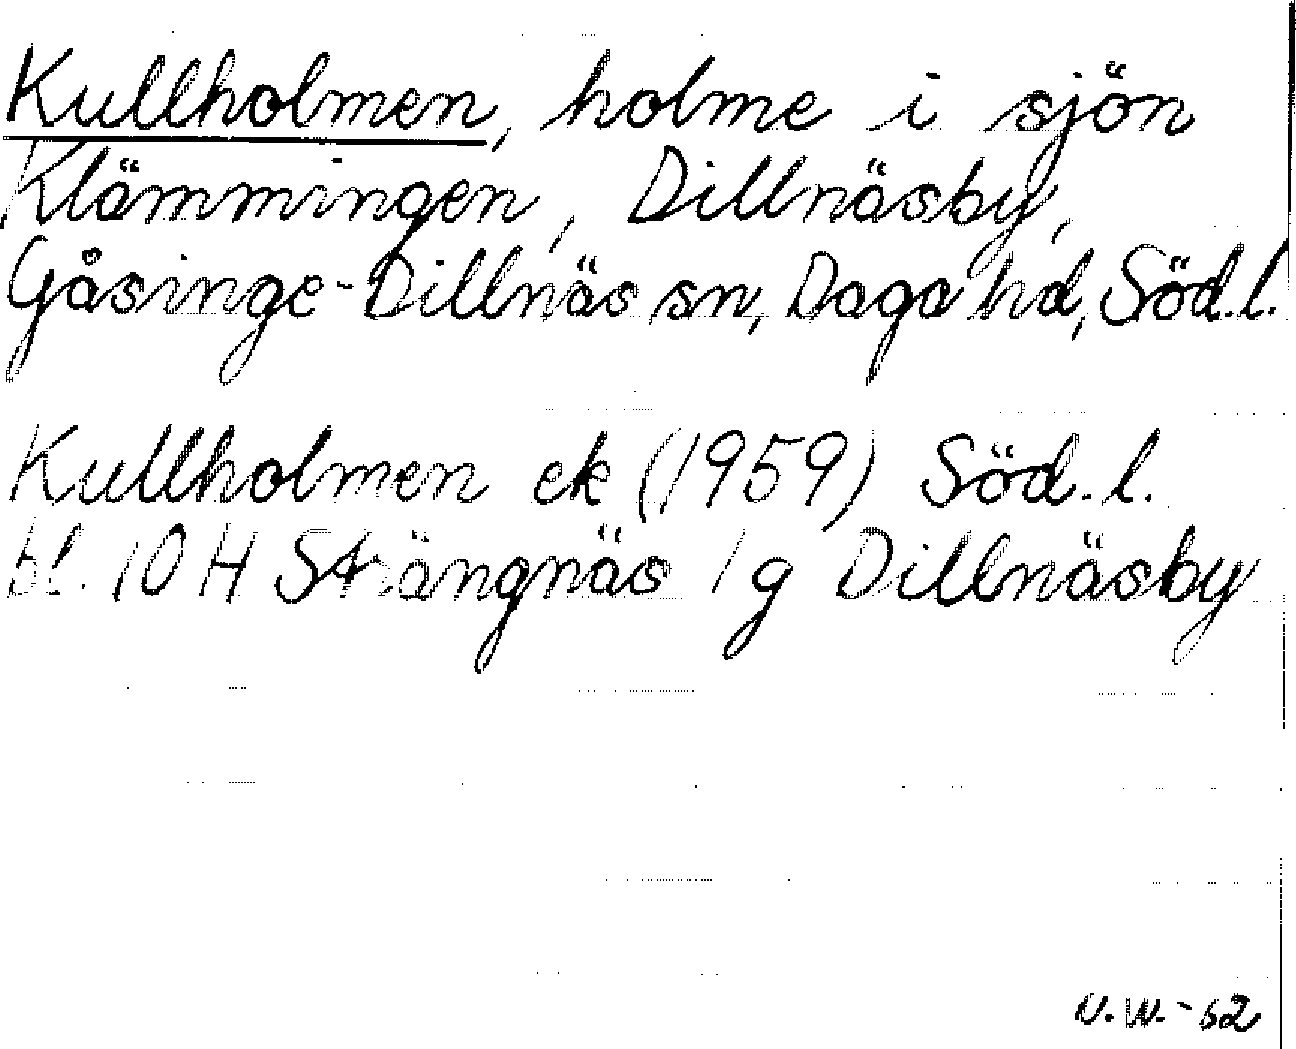 Kullholmen, holme i sjön
Klämmingen, Dillnäsby,
Gåsinge-Dillnäs sn, Daga hd, Söd.l.
Kullholmen ek (1959) Söd.l.
bl. 10 H Strängnäs 1 g Dillnäsby
V.W.-62